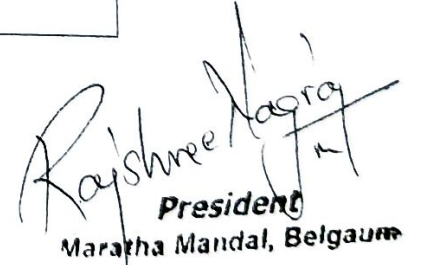 Rajshree Nagraj
President
Maratha Mandal, Belgaum